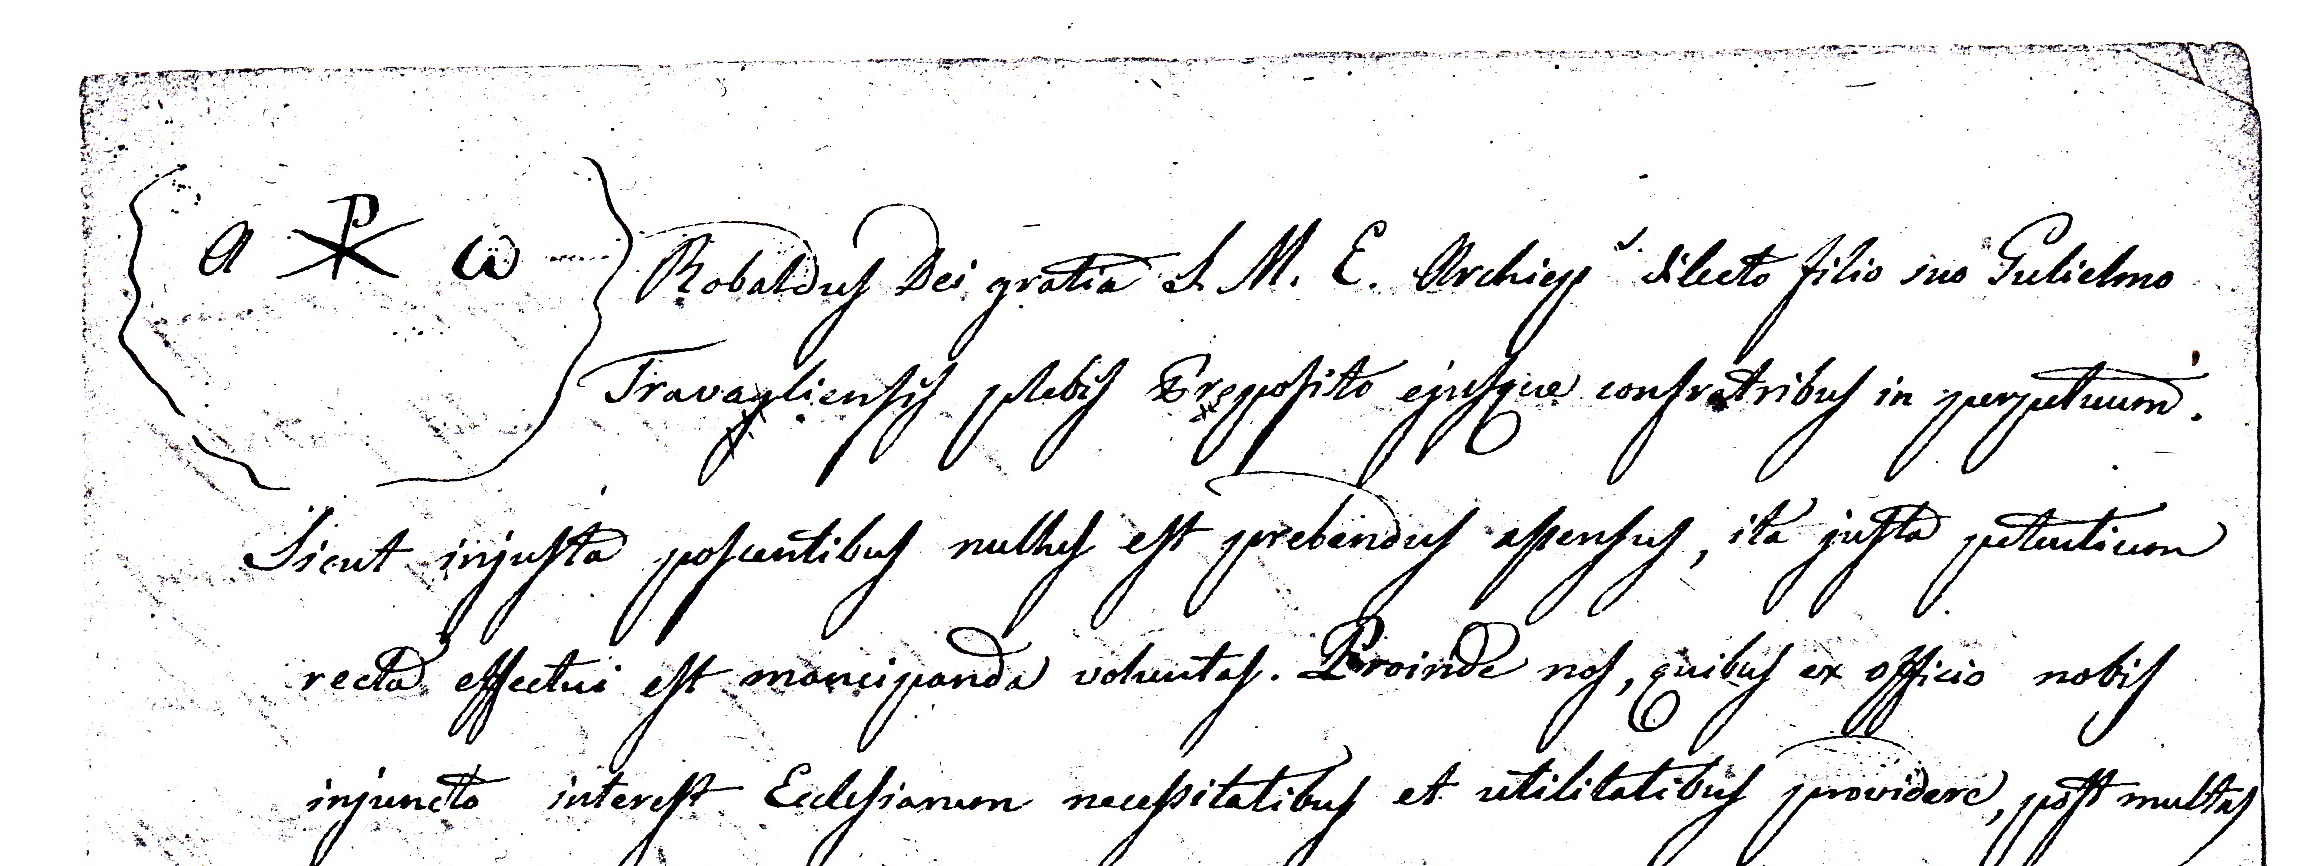 a ☧ ω Robaldus Dei gratia S. M. E. Archiepˢ dilecto filio suo Gulielmo
Travagliensis plebis Preposito ejusque confratribus in perpetuum.
Sicut injusta poscentibus nullus est prebendus assensus, ita justa petentium
recta effectui est mancipanda voluntas. Proinde nos, quibus ex officio nobis
injuncto interest Ecclesiarum necessitatibus et utilitatibus providere, post multas